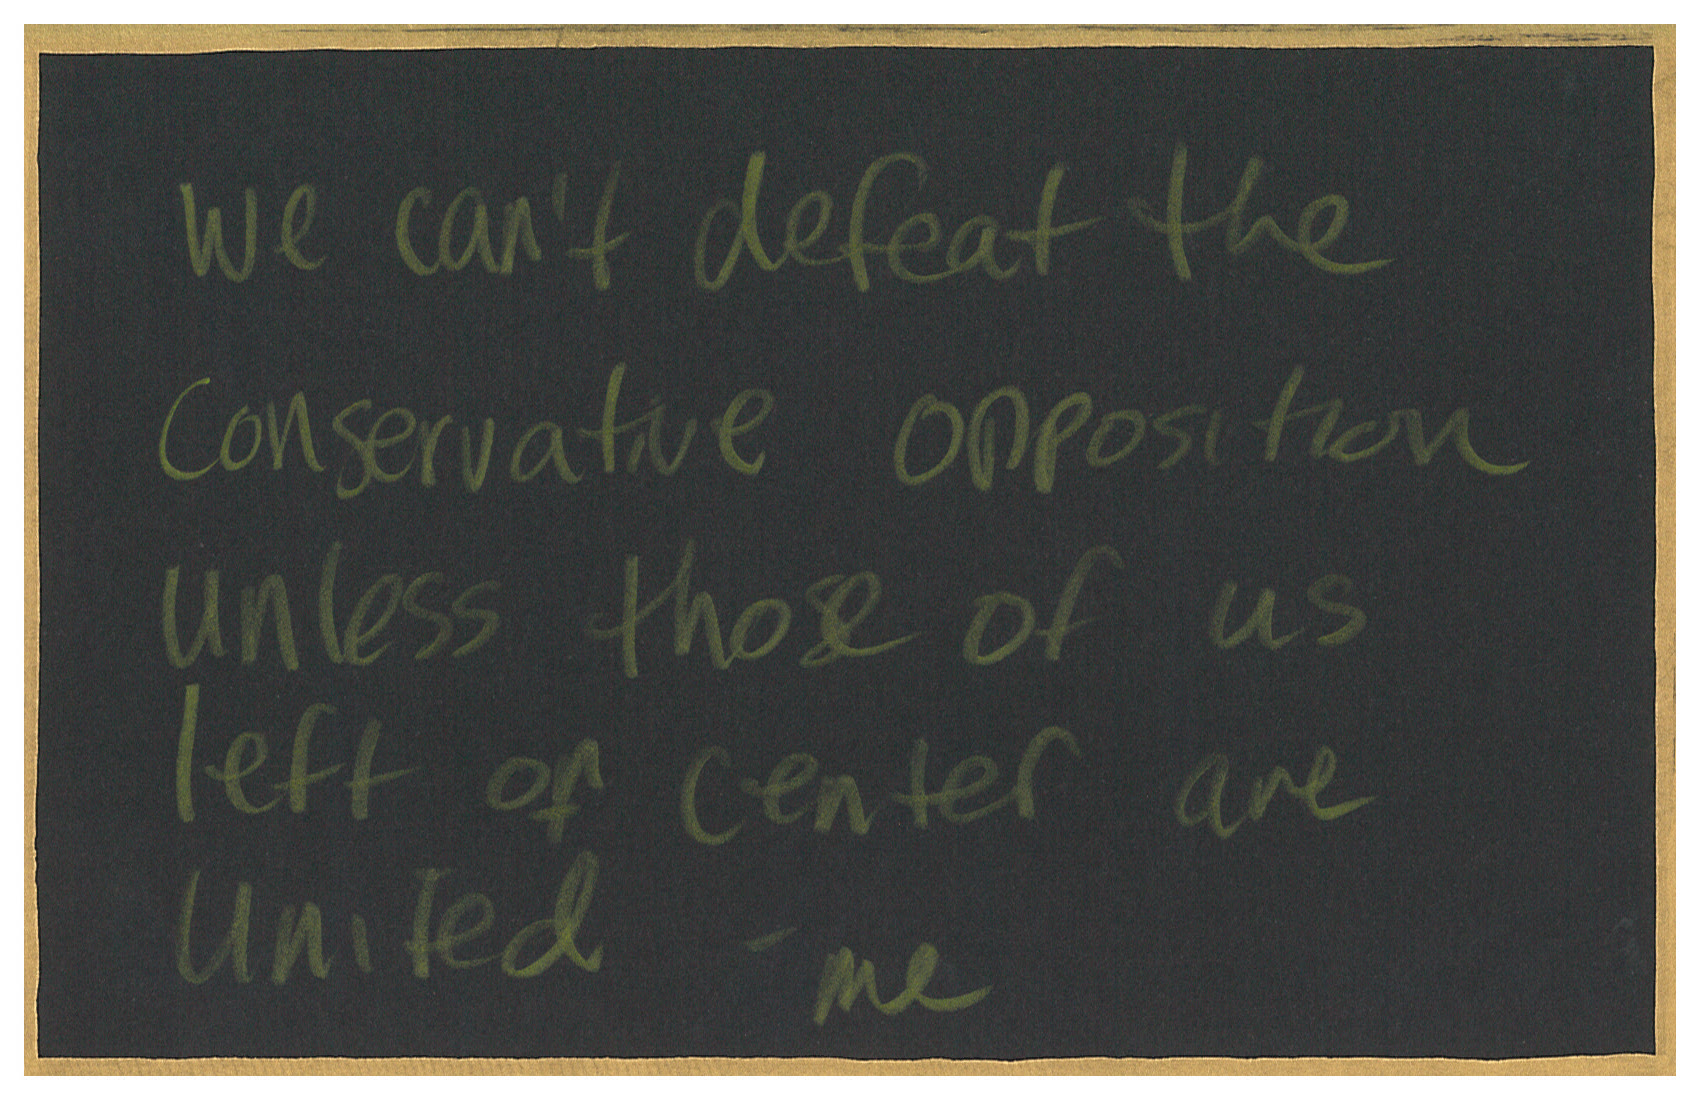 we can't defeat the
conservative opposition
unless those of us
left of center are
united - me